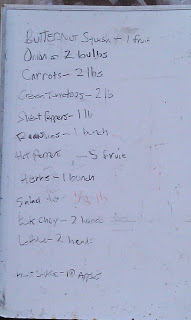 Butternut Squash - 1 fruit
Onions 2 bulbs
Carrots - 2 lbs
Green Tomatoes - 2 lb
Sweet Peppers - 1 lb
Radishes - 1 bunch
Hot Peppers - 5 fruit
Herbs - 1 bunch
Salad 1/2 lb
Bok Choy - 2 heads
Lettuce - 2 heads